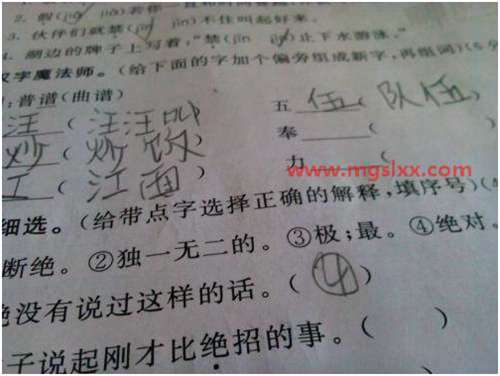 2. 假(jiǎ jià)若你一直和
3. 伙伴们就禁(jīn jìn)不住叫起好来。
4. 湖边的牌子上写着,“禁(jīn jìn)止下水游泳。”
汉字魔法师。(给下面的字加个偏旁组成新字,再组词)(6分
:普谱(曲谱) 五 伍( 队伍 )
汪( 汪汪叫 奉 (
炒( 炒饭 力 (
工( 江面 ) www.mgslxx.com
细选。(给带点字选择正确的解释,填序号)(4
断绝。②独一无二的。③极;最。④绝对。
绝没有说过这样的话。( ④ )
子说起刚才比绝招的事。( )